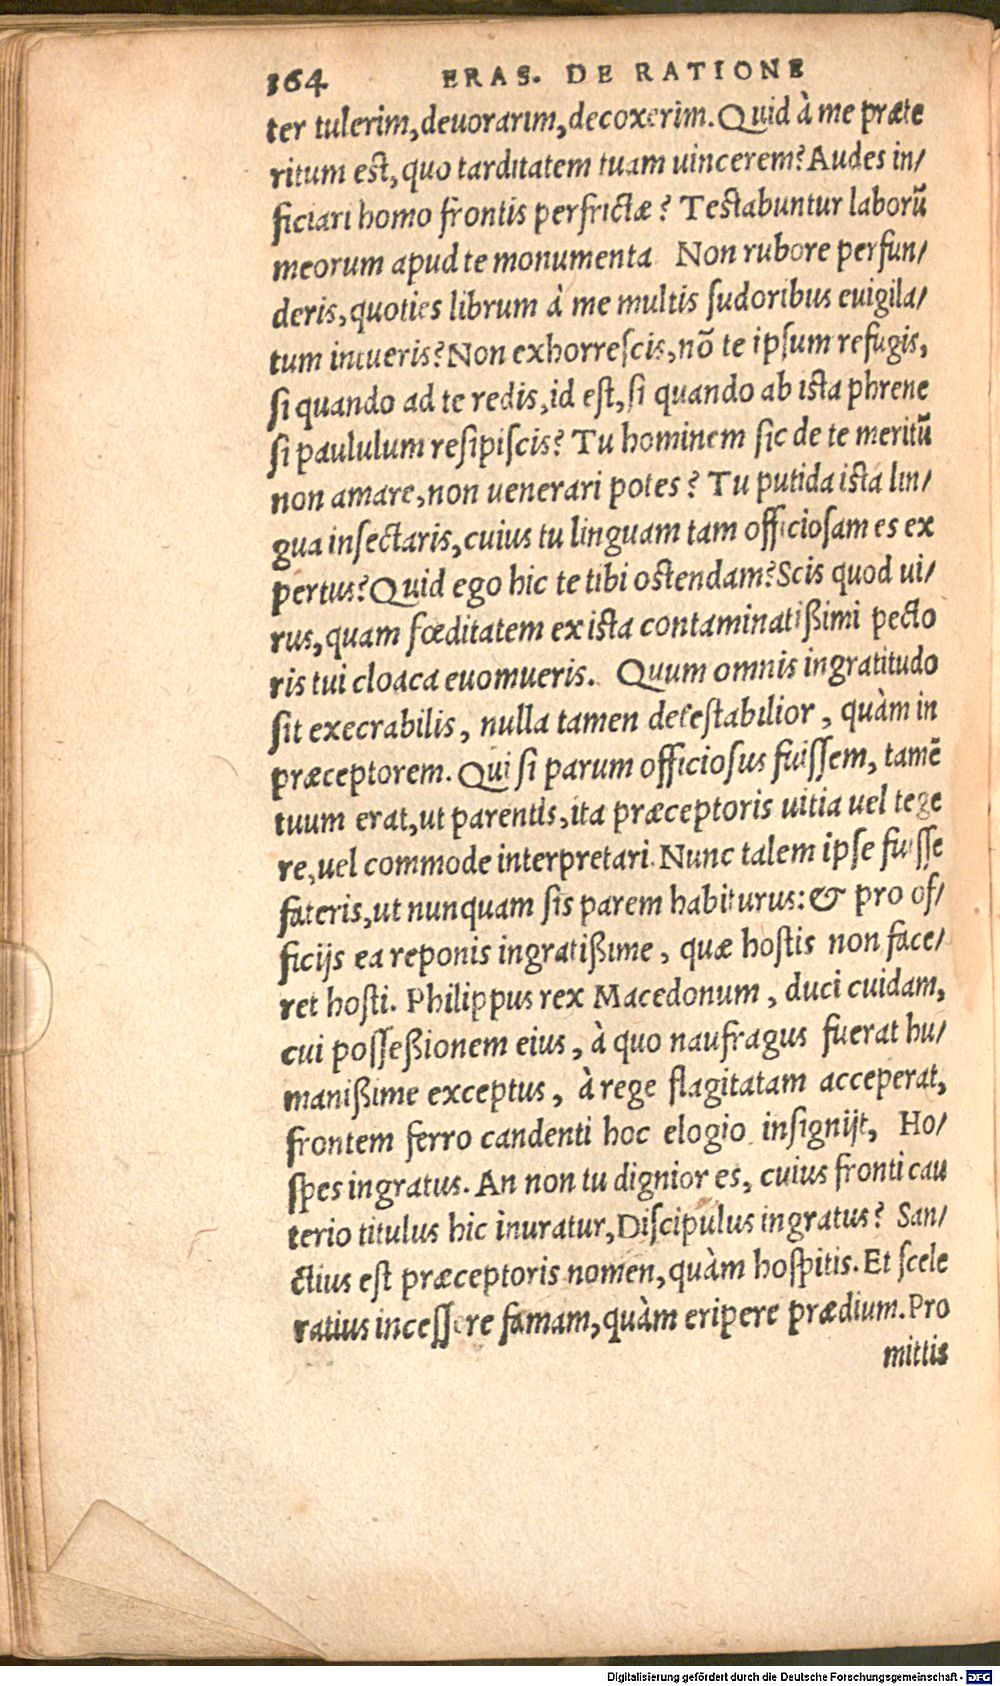 164 ERAS. DE RATIONE
ter tulerim, deuorarim, decoxerim. Quid à me præte
ritum est, quo tarditatem tuam uincerem? Audes in/
ficiari homo frontis perfrictæ? Testabuntur laborũ
meorum apud te monumenta Non rubore perfun/
deris, quoties librum à me multis sudoribus euigila/
tum intueris? Non exhorrescis, nõ te ipsum refugis,
si quando ad te redis, id est, si quando ab ista phrene
si paululum resipiscis? Tu hominem sic de te meritũ
non amare, non uenerari potes? Tu putida ista lin/
gua insectaris, cuius tu linguam tam officiosam es ex
pertus? Quid ego hic te tibi ostendam? Scis quod ui/
rus, quam fœditatem ex ista contaminatißimi pecto
ris tui cloaca euomueris. Quum omnis ingratitudo
sit execrabilis, nulla tamen detestabilior, quàm in
præceptorem. Qui si parum officiosus fuissem, tamẽ
tuum erat, ut parentis, ita præceptoris uitia uel tege
re, uel commode interpretari. Nunc talem ipse fuisse
fateris, ut nunquam sis parem habiturus: & pro of/
ficijs ea reponis ingratißime, quæ hostis non face/
ret hosti. Philippus rex Macedonum, duci cuidam,
cui posseßionem eius, à quo naufragus fuerat hu/
manißime exceptus, à rege flagitatam acceperat,
frontem ferro candenti hoc elogio insignijt, Ho/
spes ingratus. An non tu dignior es, cuius fronti cau
terio titulus hic inuratur, Discipulus ingratus? San/
ctius est præceptoris nomen, quàm hospitis. Et scele
ratius incessere famam, quàm eripere prædium. Pro
mittis
Digitalisierung gefördert durch die Deutsche Forschungsgemeinschaft - DFG